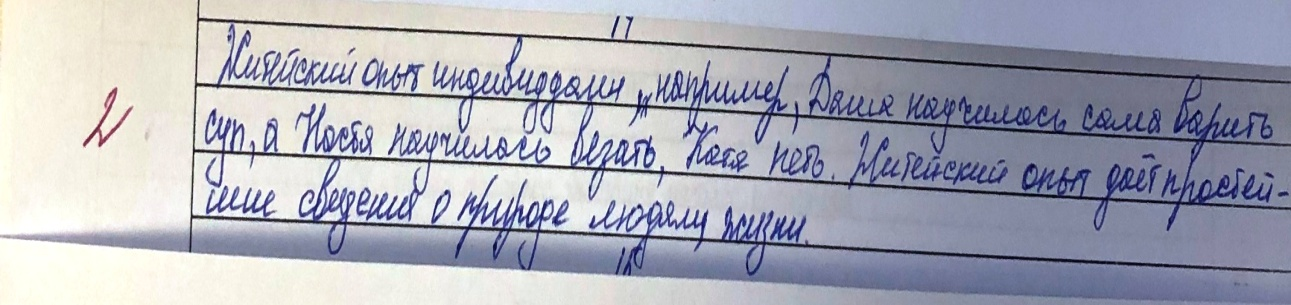 17
Житейский опыт индивидуален, например, Даша научилась сама варить
2 суп, а Настя научилась везать, Катя петь. Житейский опыт даёт простей-
шие сведения о природе людям, жизни.
18